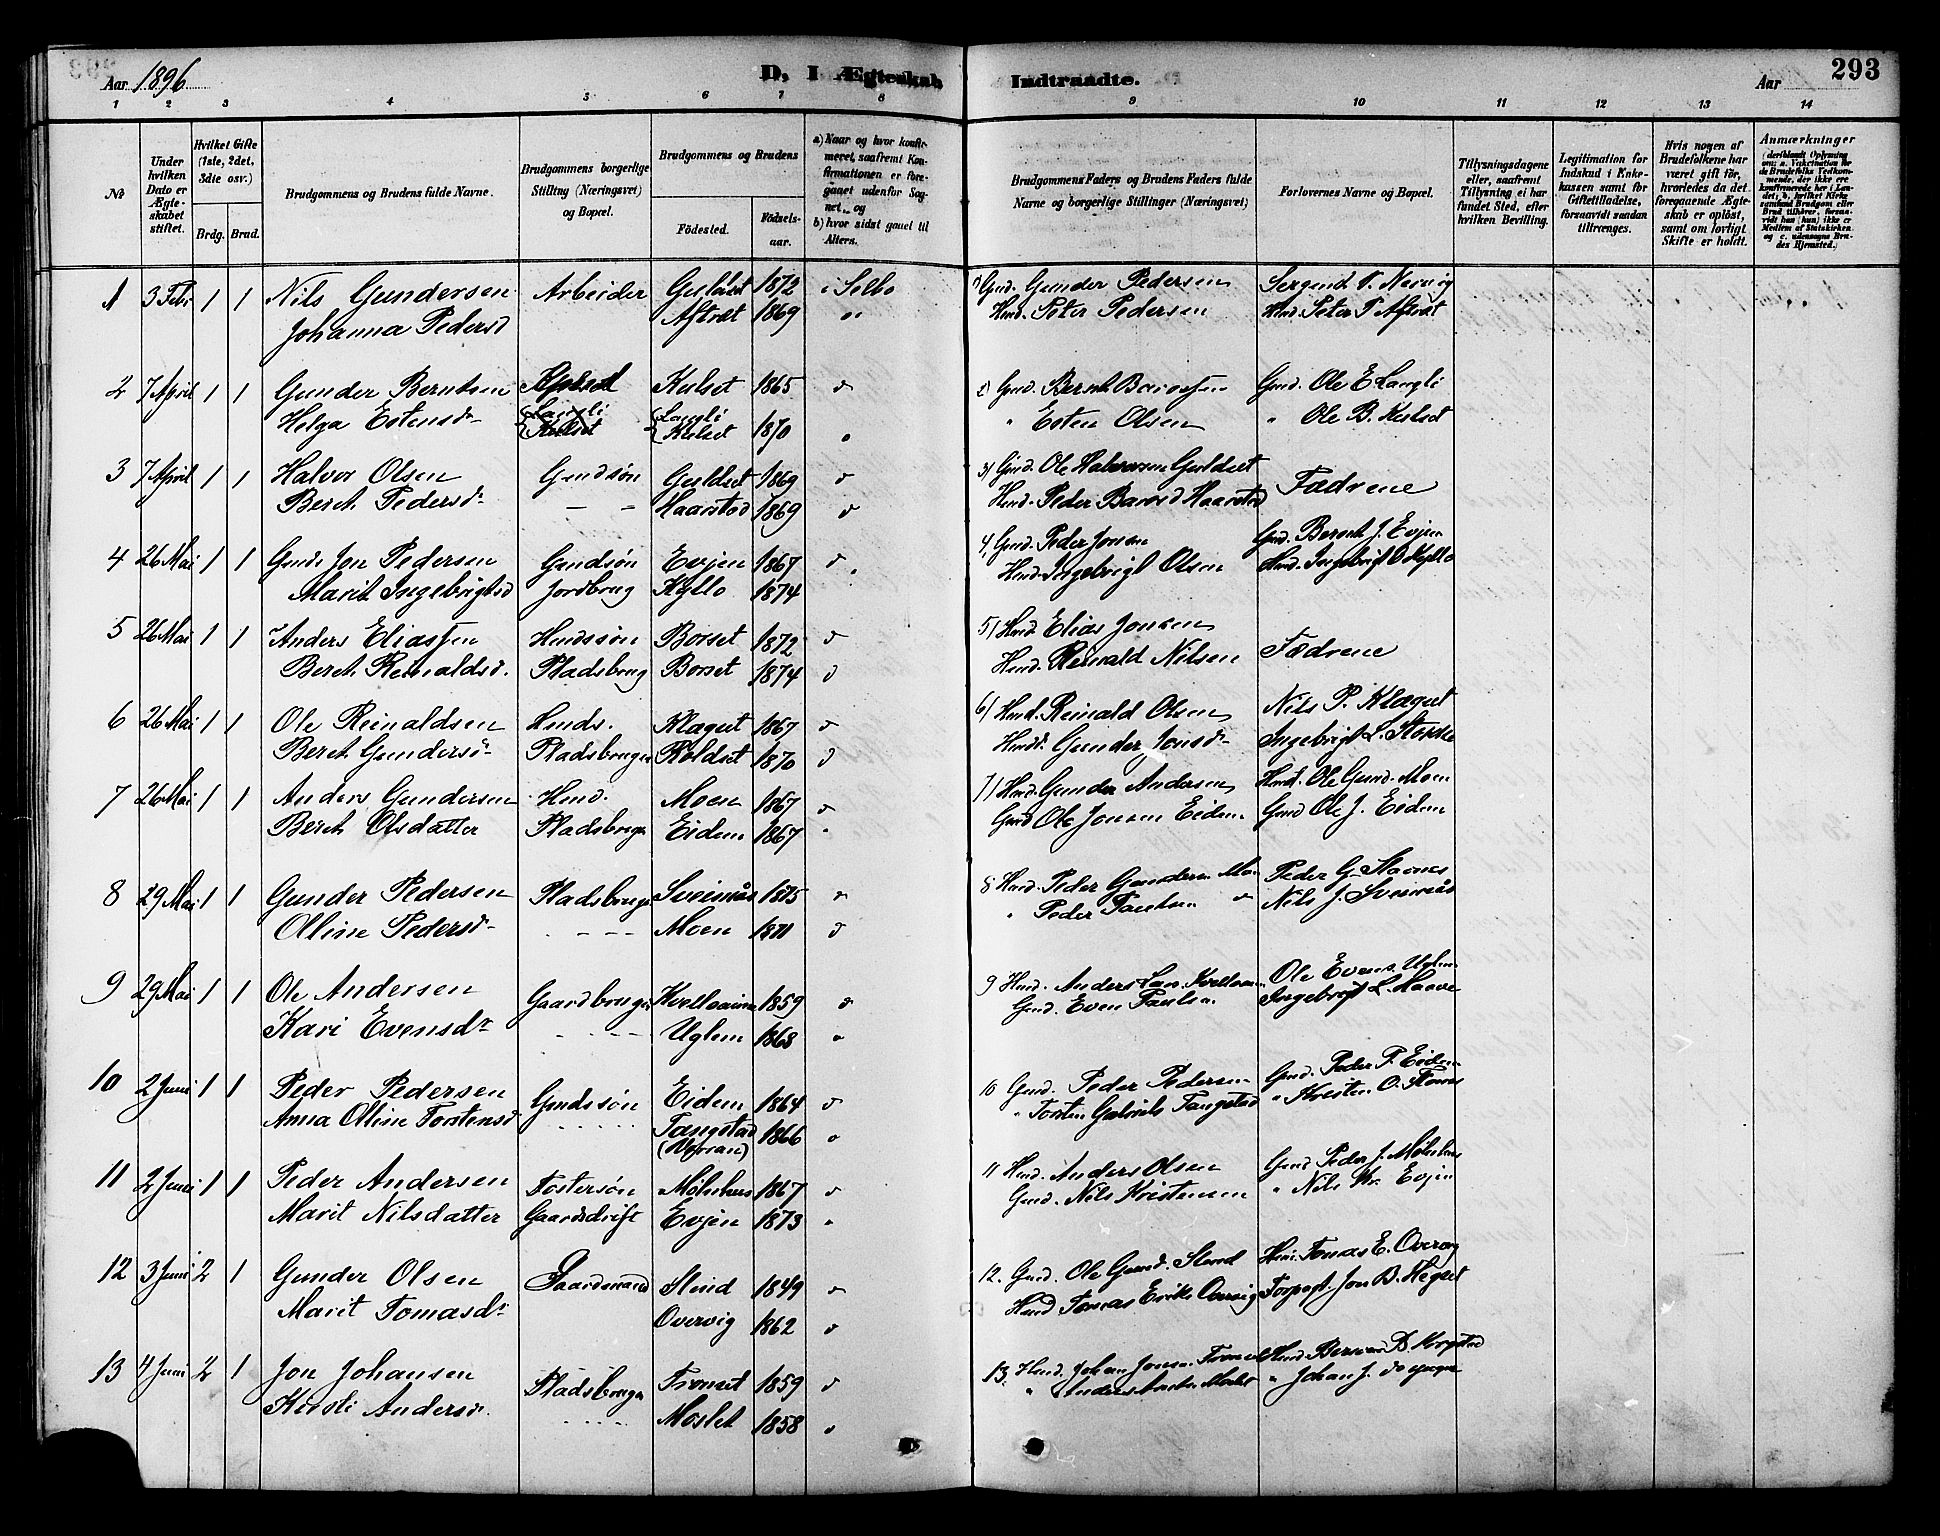 Aar 1896
D, I Ægteskab
Indtraadte.
Aar
293
1 2 3 4 5 6 7 8 9 10 11 12 13 14
№
Under hvilken Dato er Ægteskabet stiftet.
Hvilket Gifte (1ste, 2det, 3die osv.)
Brdg. Brud.
Brudgommens og Brudens fulde Navne.
Brudgommens borgerlige Stilling (Næringsvei) og Bopæl.
Brudgommens og Brudens
Fødested.
Fødselsaar.
a) Naar og hvor konfirmeret, saafremt Konfirmationen er foregaaet udenfor Sognet, og
b) hvor sidst gaaet til Alters.
Brudgommens Faders og Brudens Faders fulde Navne og borgerlige Stillinger (Næringsvei)
Forlovernes Navne og Bopæl.
Tillysningsdagene eller, saafremt Tillysning ei har fundet Sted, efter hvilken Bevilling.
Legitimation for Indskud i Enkekassen samt for Giftetilladelse, forsaavidt saadan tiltrænges.
Hvis nogen af Brudefolkene har været gift før, hvorledes da det foregaaende Ægteskab er opløst, samt om lovligt Skifte er holdt.
Anmærkninger
1 3 Febr 1 1 Nils Gundersen Arbeider Guldset 1872 i Selbo
Johanna Pedersd Aftret 1869 "
1) Gmd. Gunder Pedersen Sergend P. Nervig
Hmd. Peter Pedersen Hmd. Peter P Aftret
2 7 April 1 1 Gunder Berntsen Kulset 1865
Helga Estensdr Langli Kulset 1870
2) Gmd. Bernt Gmd. Ole E Langli
" Esten Olsen " Ole B. Kulset
3 7 April 1 1 Halvor Olsen Gmdsøn Guldset 1869
Beret Pedersdr Haarstad 1869
3) Gmd. Ole Halvorsen Guldset Fædrene
Hmd. Peder Haarstad
4 26 Mai 1 1 Gmds Jon Pedersen Gmdsøn Evjen 1867
Marit Ingebrigtsd Jordbrug Kyllo 1874
4) Gmd. Peder Jonsen Gmd. Bernt J. Evjen
Hmd. Ingebrigt Olsen Hmd. Ingebrigt O Kyllo
5 26 Mai 1 1 Anders Eliassen Hmdssøn Borset 1872
Beret Reinaldsd. Pladsbrug Borset 1874
5) Hmd Elias Jonsen Fædrene
Hmd. Reinald Nilsen
6 26 Mai 1 1 Ole Reinaldsen Hmds. Klæget 1867
Beret Gundersdr Pladsbruger Roldset 1870
6) Hmd. Reinald Olsen Nils P. Klæget
Hmd. Gunder Jonsdr Ingebrigt L. Stokke
7 26 Mai 1 1 Anders Gundersen Hmd. Moen 1867
Beret Olsdatter Pladsbruger Eidem 1867
7) Hmd. Gunder Andersen Hmd. Ole Gund. Moen
Gmd Ole Jonsen Eidem Gmd Ole J. Eidem
8 29 Mai 1 1 Gunder Pedersen Pladsbruger Sveinaas 1875
Olline Pedersdr Moen 1871
8 Hmd. Peder Gundersen Peder G. Stavnes
" Peder Paulsen Nils J. Sveinaas
9 29 Mai 1 1 Ole Andersen Gaardbruger 1859
Kari Evensdr Uglem 1868
9 Hmd. Anders Lars. Ole Evens. Uglem
Gmd. Even Paulsen Ingebrigt L.
10 2 Juni 1 1 Peder Pedersen Gmdssøn Eidem 1864
Anna Olline Torstensd Tangstad 1866
10 Gmd. Peder Pedersen Gmd. Peder P. Eidem
" Torsten Gabriels Tangstad " Kristen O.
11 2 Juni 1 1 Peder Andersen Fostersøn Mølnhus 1867
Marit Nilsdatter Gaardsdrift Evjen 1873
11 Hmd. Anders Olsen Gmd Peder J. Mølnhus
Gmd. Nils Kristensen " Nils Kr. Evjen
12 3 Juni 2 1 Gunder Olsen Gaardmand Slind 1849
Marit Tomasdr Overvig 1862
12. Gmd. Ole Gund. Slind Hmd. Tomas E. Overvig
Hmd Tomas Eriks Overvig Forpagt. Jon B. Hegset
13 4 Juni 2 1 Jon Johansen Pladsbruger Tronset 1859
Kirsti Andersd. Moslet 1858
13. Hmd. Johan Jonsen Hmd.
" Anders Moslet " Johan J.